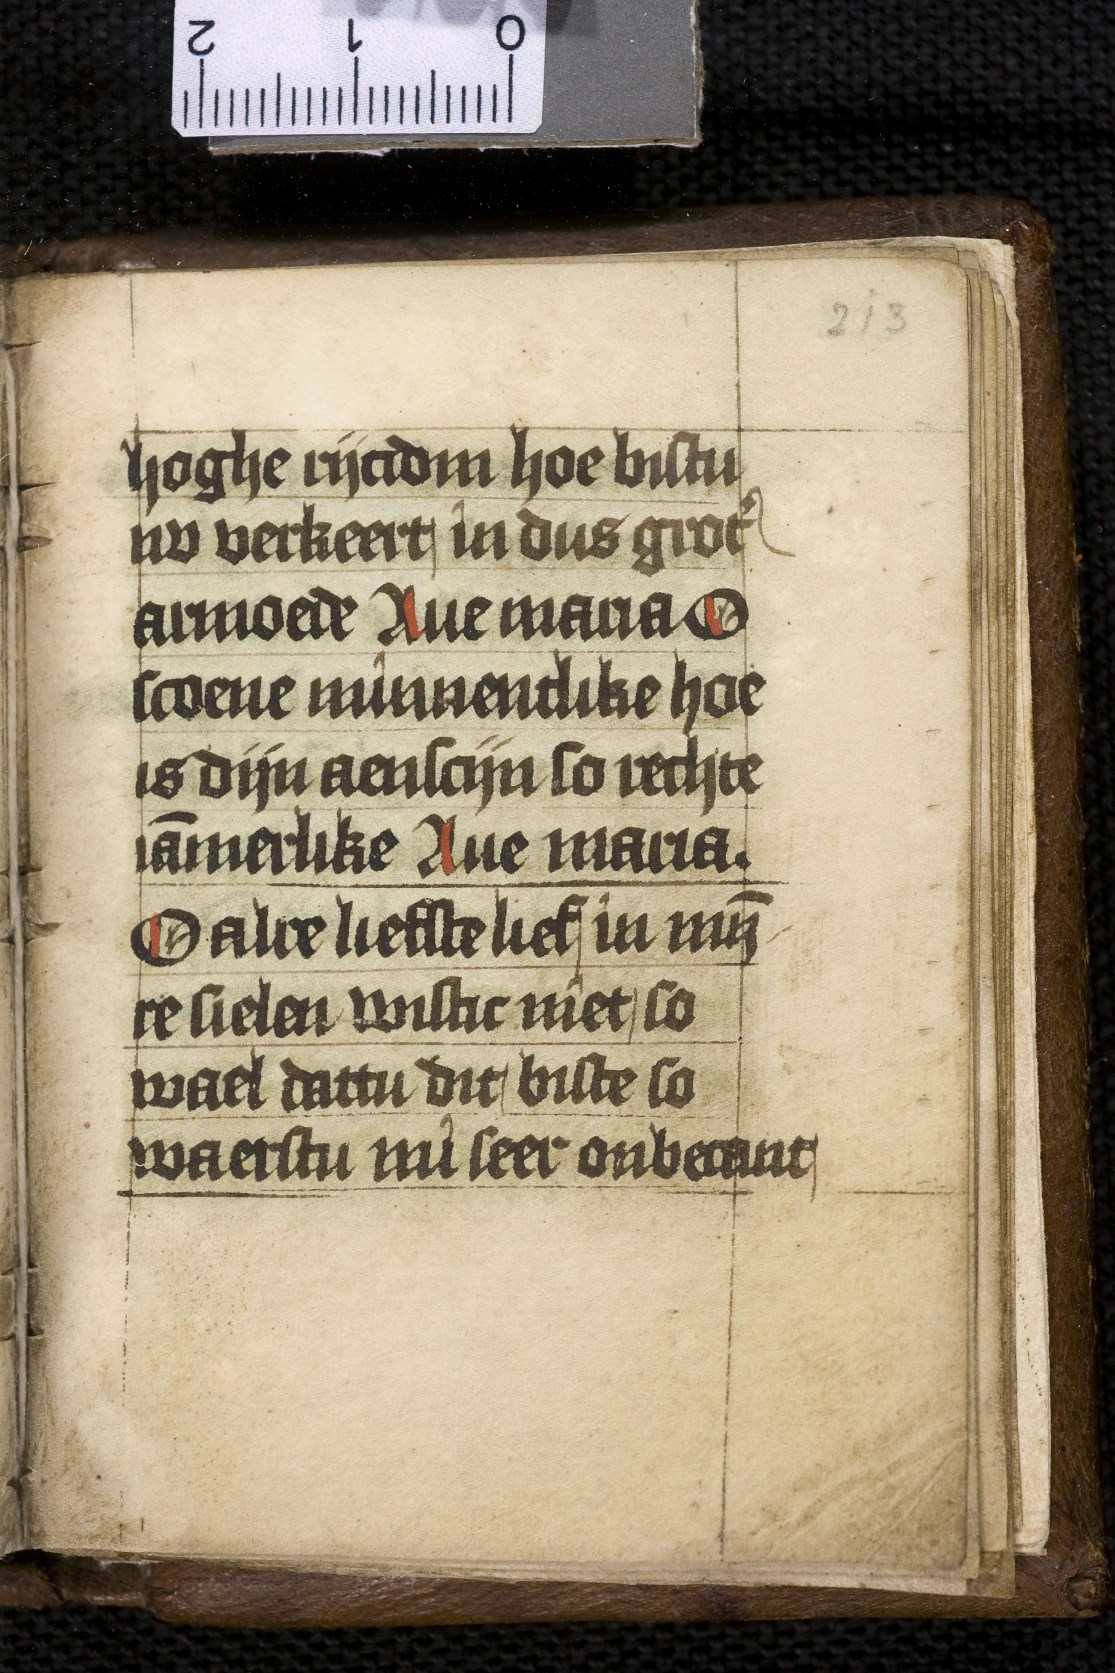 2 1 0
213
hoghe rijcdom hoe bistu
nv verkeert in dus grot
armoede Aue maria O
scoene minnentlike hoe
is dijn aenscijn so rechte
iāmerlike Aue maria.
O alre liefste lief in mijn̄
re sielen wistic niet so
wael dattu dit biste so
waerstu mi seer onbecant